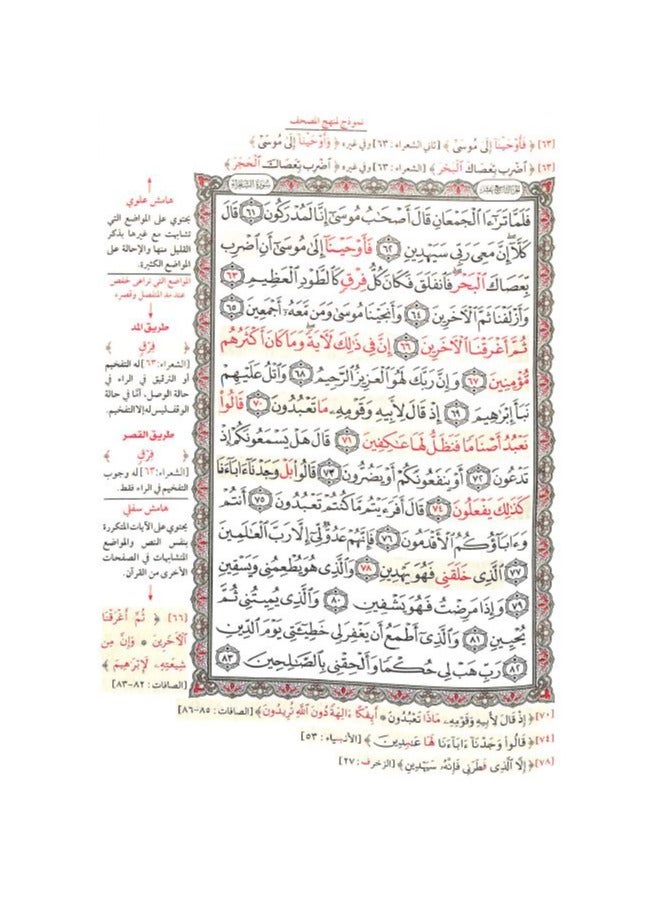 نموذج لمنهج المصحف
[٦٣] ﴿ فَأَوْحَيْنَآ إِلَىٰ مُوسَىٰٓ ﴾ [ثاني الشعراء: ٦٣] وفي غيره ﴿ وَأَوْحَيْنَآ إِلَىٰ مُوسَىٰٓ ﴾
[٦٣] ﴿ ٱضْرِب بِّعَصَاكَ ٱلْبَحْرَ ﴾ [الشعراء: ٦٣] وفي غيره ﴿ ٱضْرِب بِّعَصَاكَ ٱلْحَجَرَ ﴾
سُورَةُ الشُّعَرَاءِ
فَلَمَّا تَرَٰٓءَا ٱلْجَمْعَانِ قَالَ أَصْحَٰبُ مُوسَىٰٓ إِنَّا لَمُدْرَكُونَ ٦١ قَالَ
كَلَّآ إِنَّ مَعِىَ رَبِّى سَيَهْدِينِ ٦٢ فَأَوْحَيْنَآ إِلَىٰ مُوسَىٰٓ أَنِ ٱضْرِب
بِّعَصَاكَ ٱلْبَحْرَ فَٱنفَلَقَ فَكَانَ كُلُّ فِرْقٍ كَٱلطَّوْدِ ٱلْعَظِيمِ ٦٣
وَأَزْلَفْنَا ثَمَّ ٱلْءَاخَرِينَ ٦٤ وَأَنجَيْنَا مُوسَىٰ وَمَن مَّعَهُۥٓ أَجْمَعِينَ ٦٥
ثُمَّ أَغْرَقْنَا ٱلْءَاخَرِينَ ٦٦ إِنَّ فِى ذَٰلِكَ لَءَايَةً وَمَا كَانَ أَكْثَرُهُم
مُّؤْمِنِينَ ٦٧ وَإِنَّ رَبَّكَ لَهُوَ ٱلْعَزِيزُ ٱلرَّحِيمُ ٦٨ وَٱتْلُ عَلَيْهِمْ
نَبَأَ إِبْرَٰهِيمَ ٦٩ إِذْ قَالَ لِأَبِيهِ وَقَوْمِهِۦ مَا تَعْبُدُونَ ٧٠ قَالُوا۟
نَعْبُدُ أَصْنَامًا فَنَظَلُّ لَهَا عَٰكِفِينَ ٧١ قَالَ هَلْ يَسْمَعُونَكُمْ إِذْ
تَدْعُونَ ٧٢ أَوْ يَنفَعُونَكُمْ أَوْ يَضُرُّونَ ٧٣ قَالُوا۟ بَلْ وَجَدْنَآ ءَابَآءَنَا
كَذَٰلِكَ يَفْعَلُونَ ٧٤ قَالَ أَفَرَءَيْتُم مَّا كُنتُمْ تَعْبُدُونَ ٧٥ أَنتُمْ
وَءَابَآؤُكُمُ ٱلْأَقْدَمُونَ ٧٦ فَإِنَّهُمْ عَدُوٌّ لِّىٓ إِلَّا رَبَّ ٱلْعَٰلَمِينَ
٧٧ ٱلَّذِى خَلَقَنِى فَهُوَ يَهْدِينِ ٧٨ وَٱلَّذِى هُوَ يُطْعِمُنِى وَيَسْقِينِ
٧٩ وَإِذَا مَرِضْتُ فَهُوَ يَشْفِينِ ٨٠ وَٱلَّذِى يُمِيتُنِى ثُمَّ
يُحْيِينِ ٨١ وَٱلَّذِىٓ أَطْمَعُ أَن يَغْفِرَ لِى خَطِيٓـَٔتِى يَوْمَ ٱلدِّينِ
٨٢ رَبِّ هَبْ لِى حُكْمًا وَأَلْحِقْنِى بِٱلصَّٰلِحِينَ ٨٣
هامش علوي
يحتوي على المواضع التي
تشابهت مع غيرها بذكر
القليل منها والإحالة على
المواضع الكثيرة.
المواضع التي تراعى لحفص
عند مد المنفصل وقصره
طريق المد
﴿ فِرْقٍ ﴾
[الشعراء: ٦٣] له التفخيم
أو الترقيق في الراء في
حالة الوصل، أمّا في حالة
الوقف ليس له إلا التفخيم.
طريق القصر
﴿ فِرْقٍ ﴾
[الشعراء: ٦٣] له وجوب
التفخيم في الراء فقط.
هامش سفلي
يحتوي على الآيات المتكررة
بنفس النص والمواضع
المتشابهات في الصفحات
الأخرى من القرآن.
[٦٦] ﴿ ثُمَّ أَغْرَقْنَا
ٱلْءَاخَرِينَ * وَإِنَّ مِن
شِيعَتِهِۦ لَإِبْرَٰهِيمَ ﴾
[الصافات: ٨٢-٨٣]
[٧٠] ﴿ إِذْ قَالَ لِأَبِيهِ وَقَوْمِهِۦ مَاذَا تَعْبُدُونَ * أَئِفْكًا ءَالِهَةً دُونَ ٱللَّهِ تُرِيدُونَ ﴾ [الصافات: ٨٥-٨٦]
[٧٤] ﴿ قَالُوا۟ وَجَدْنَآ ءَابَآءَنَا لَهَا عَٰبِدِينَ ﴾ [الأنبياء: ٥٣]
[٧٨] ﴿ إِلَّا ٱلَّذِى فَطَرَنِى فَإِنَّهُۥ سَيَهْدِينِ ﴾ [الزخرف: ٢٧]